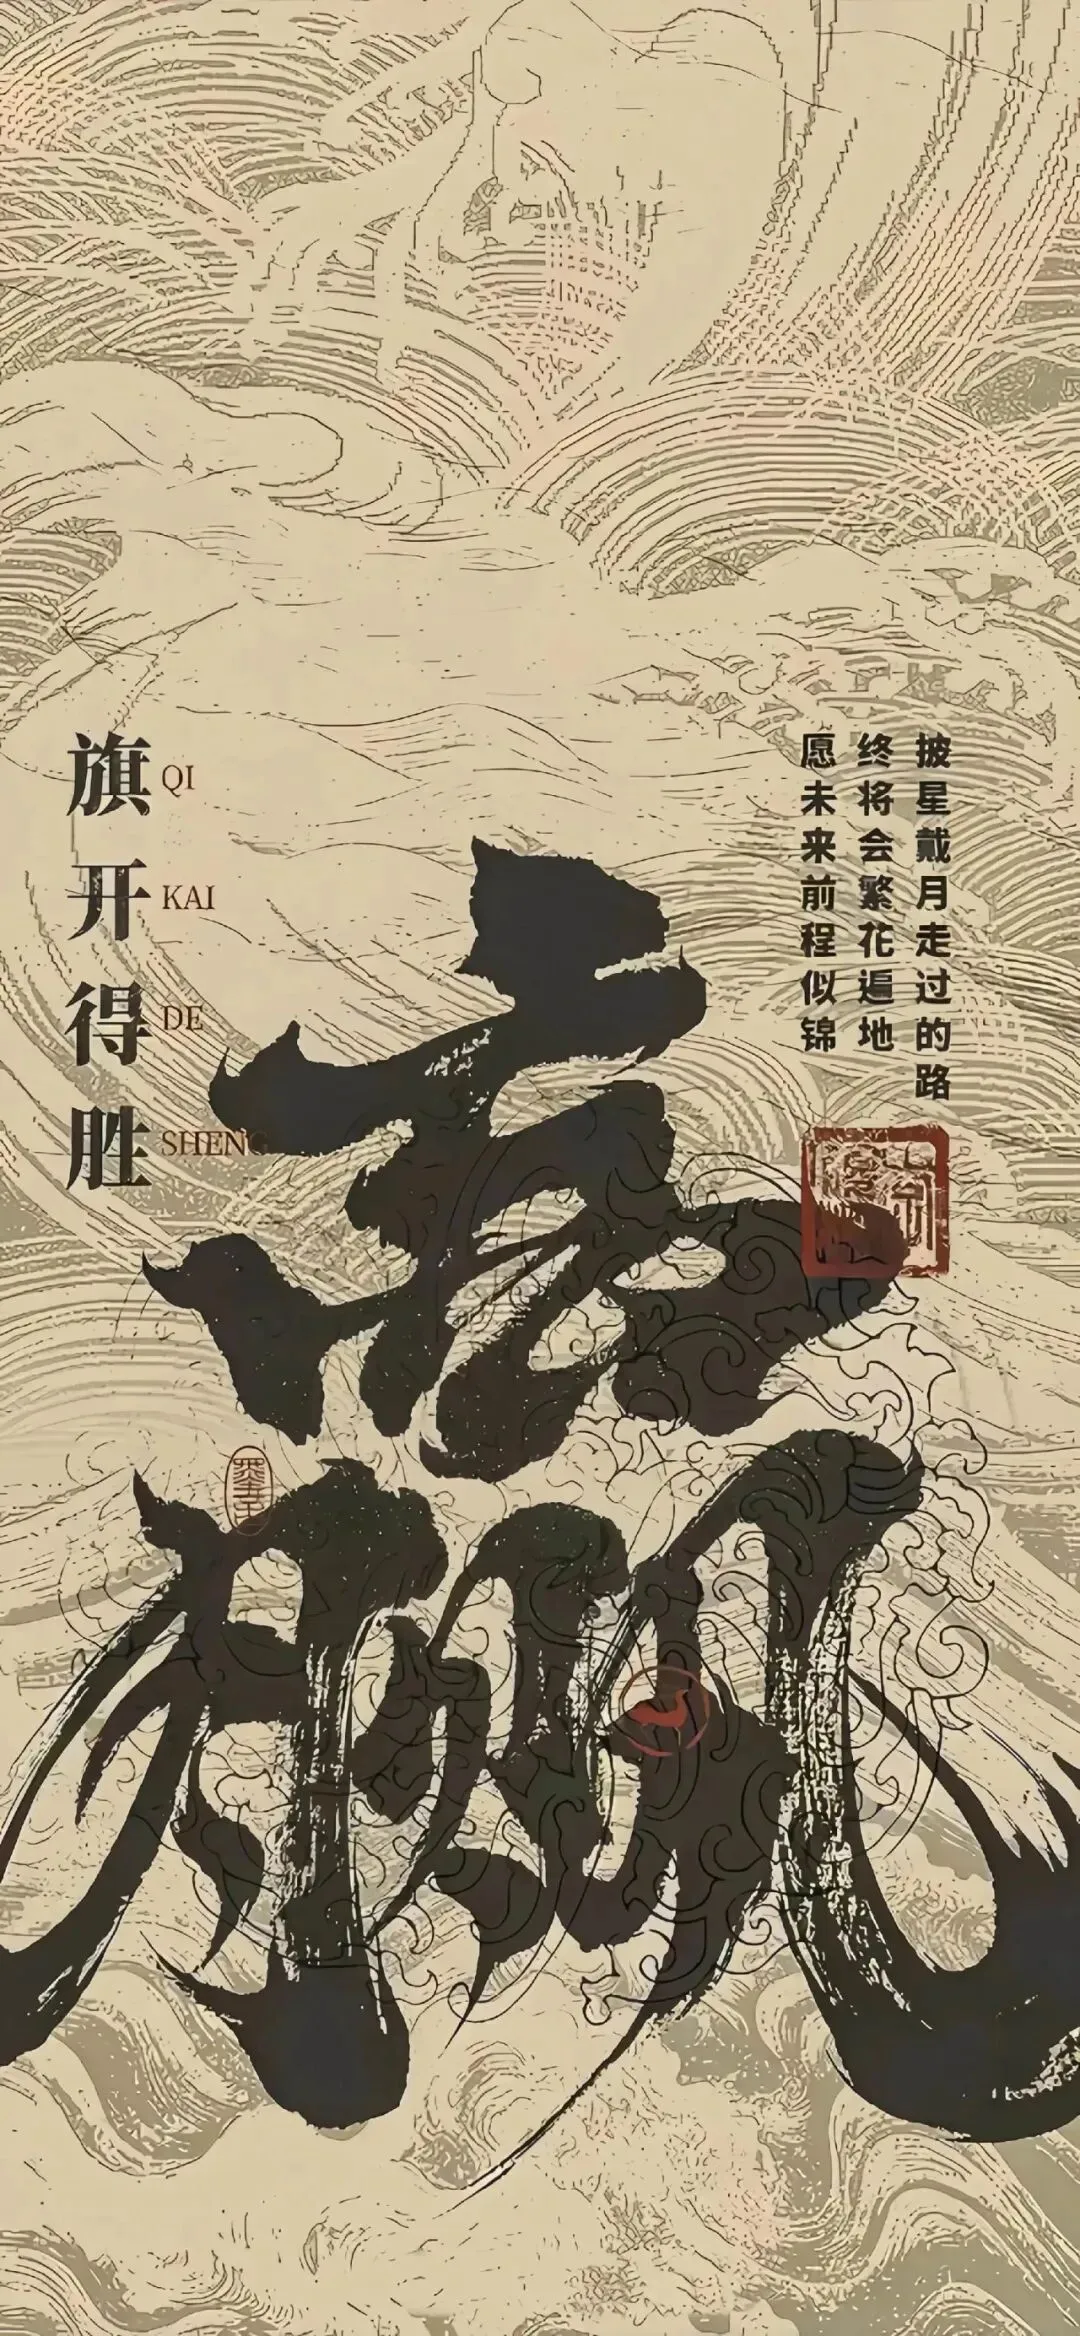 披星戴月走过的路
终将会繁花遍地
愿未来前程似锦
赢
旗开得胜
QI KAI DE SHENG